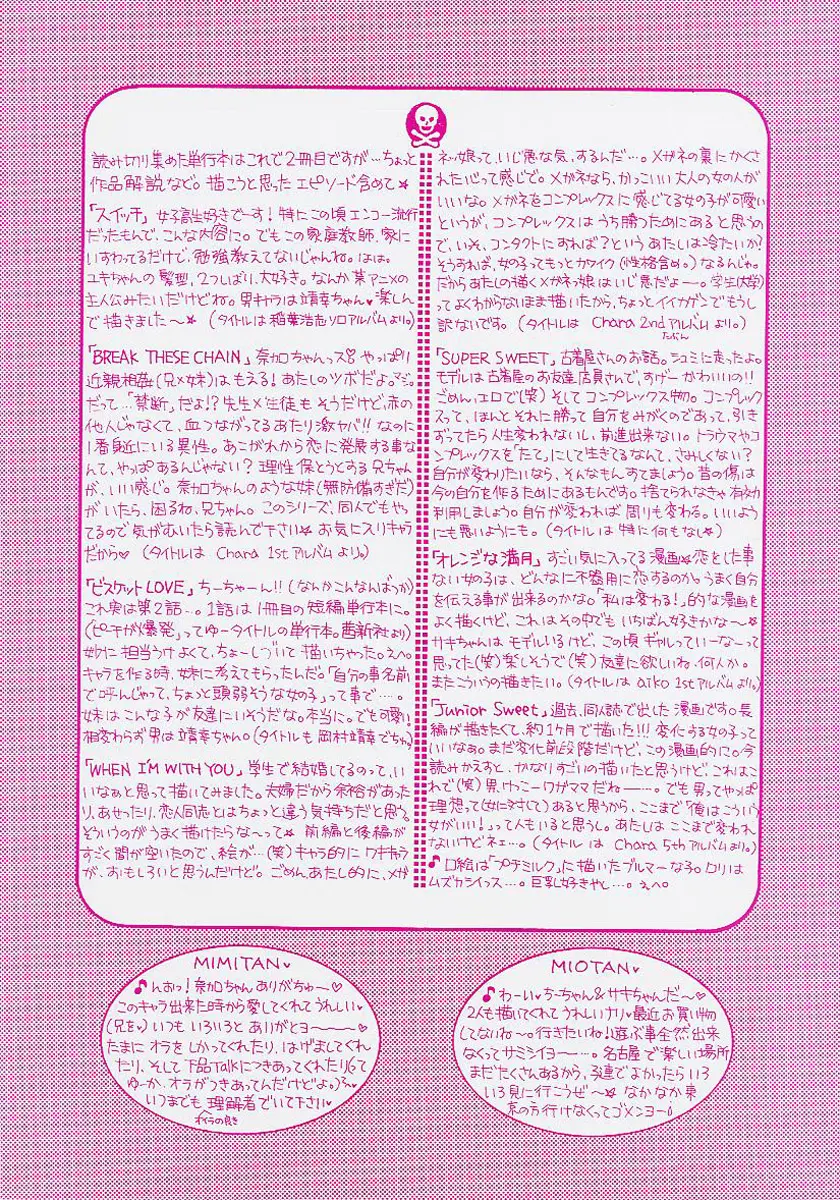 読み切り集めた単行本はこれで2冊目ですが…ちょっと
作品解説など。描こうと思ったエピソード含めて★
「スイッチ」女子高生好きでーす!特にこの頃エンコー流行
だったもんで、こんな内容に。でもこの家庭教師、家に
いすわってるだけで、勉強教えてないじゃんね。はは。
ユキちゃんの髪型、2つしばり、大好き。なんか某アニメの
主人公みたいだけどね。男キャラは靖幸ちゃん♥楽しん
で描きました〜★(タイトルは稲葉浩志ソロアルバムより。)
「BREAK THESE CHAIN」奈加ちゃんっス♡やっぱり
近親相姦(兄×妹)はもえる!あたしのツボだよ。マジ。
だって…「禁断」だよ!?先生×生徒もそうだけど、赤の
他人じゃなくて、血つながってるあたり激ヤバ!!なのに
1番身近にいる異性。あこがれから恋に発展する事な
んて、やっぱあるんじゃない?理性保とうとする兄ちゃん
が、いい感じ。奈加ちゃんのような妹(無防備すぎだ)
がいたら、困るね、兄ちゃん。このシリーズ、同人でもや
ってるので気がむいたら読んで下さい★お気に入りキャラ
だから♥(タイトルは Chara 1st アルバムより。)
「ビスケットLOVE」ちーちゃーん!!(なんかこんなんばっか)
これ実は第2話…。1話は1冊目の短編単行本に。
(「ピーチが爆発」ってゆータイトルの単行本。茜新社より)
妙に担当うけよくて、ちょーしづいて描いちゃった。えへ。
キャラを作る時、妹に考えてもらったんだ。「自分の事名前
で呼んじゃって、ちょっと頭弱そうな女の子」って事で…。
妹はこんな子が友達にいそうだな。本当に。でも可愛い。
相変わらず男は靖幸ちゃん。(タイトルも岡村靖幸でちゅ)
「WHEN I'M WITH YOU」学生で結婚してるのって、い
いなぁと思って描いてみました。夫婦だから余裕があった
り、あせったり。恋人同志とはちょっと違う気持ちだと思う。
そういうのがうまく描けたらな〜って★ 前編と後編が
すごく間が空いたので、絵が…(笑)キャラ的にワキキャラ
が、おもしろいと思うんだけど。ごめん、あたし的に、メガ
ネッ娘って、いじ悪な気、するんだ…。メガネの裏にかくさ
れた心って感じで。メガネなら、かっこいい大人の女の人が
いいな。メガネをコンプレックスに感じてる女の子が可愛い
というが、コンプレックスはうち勝つためにあると思うの
で、いっそ、コンタクトにすれば?というあたしは冷たいか?
そうすれば、女の子ってもっとカワイク(性格含め。)なるんじゃ。
だからあたしの描くメガネッ娘はいじ悪だよー。学生(大学)
ってよくわからないまま描いたから、ちょっとイイカゲンでもうし
訳ないです。(タイトルは Chara 2nd アルバムより。)
たぶん
「SUPER SWEET」古着屋さんのお話。シュミに走ったよ。
モデルは古着屋のお友達店員さんで、すげーかわいいの!!
ごめん、エロで(笑)そしてコンプレックス物。コンプレック
スって、ほんとそれに勝って自分をみがくのであって、引き
ずってたら人生変われないし、前進出来ない。トラウマやコ
ンプレックスを「たて」にして生きてるなんて、さみしくない?
自分が変わりたいなら、そんなもんすてましょう。昔の傷は
今の自分を作るためにあるもんです。捨てられなきゃ有効
利用しましょう。自分が変われば周りも変わる。いいよう
にも悪いようにも。(タイトルは特に何もなし★)
「オレンジな満月」すごい気に入ってる漫画★恋をした事
ない女の子は、どんなに不器用に恋するのか。うまく自分
を伝える事が出来るのかな。「私は変わる!」的な漫画を
よく描くけど、これはその中でもいちばん好きかな〜★
サキちゃんはモデルいるけど、この頃ギャルっていーな〜って
思ってた(笑)楽しそうで(笑)友達に欲しいね。何人か。
またこういうの描きたい。(タイトルは aiko 1st アルバムより。)
「Junior Sweet」過去、同人誌で出した漫画です。長
編が描きたくて、約1ヶ月で描いた!!!変化する女の子って
いいなあ。まだ変化前段階だけど、この漫画的に。今
読みかえすと、かなりすごいの描いたと思うけど、これはこ
れで(笑)男、けっこーワガママだねー…。でも男ってやっぱ
理想って(女に対して)あると思うから、ここまで「俺はこういう
女がいい!」って人もいると思うし。あたしはここまで変われ
ないけどネェ…。(タイトルは Chara 5th アルバムより。)
♪口絵は「プチミルク」に描いたブルマーな子。ロリは
ムズカシイっス…。巨乳好きやし…。えへ。
MIMITAN♥
♪んおっ!奈加ちゃんありがちゅ〜♡
このキャラ出来た時から愛してくれてうれしい♥
(兄を♥)いつもいろいろとありがとヨ〜〜♡
たまにオラをしかってくれたり、はげましてくれ
たり、そして下品Talkにつきあってくれたり(って
ゆーか、オラがつきあってんだけどよ。)ふ♥
いつまでも理解者でいて下さい♥
オイラの良き
MIOTAN♥
♪わーい♥ちーちゃん&サキちゃんだ〜♡
2人も描いてくれてうれしいナリ♥最近お買い物
してないね〜。行きたいね!遊ぶ事全然出来
なくってサミシイヨー…。名古屋で楽しい場所
まだたくさんあるから、3連でよかったらいろ
いろ見に行こうぜ〜★なかなか東
京の方行けなくってゴメンヨー!